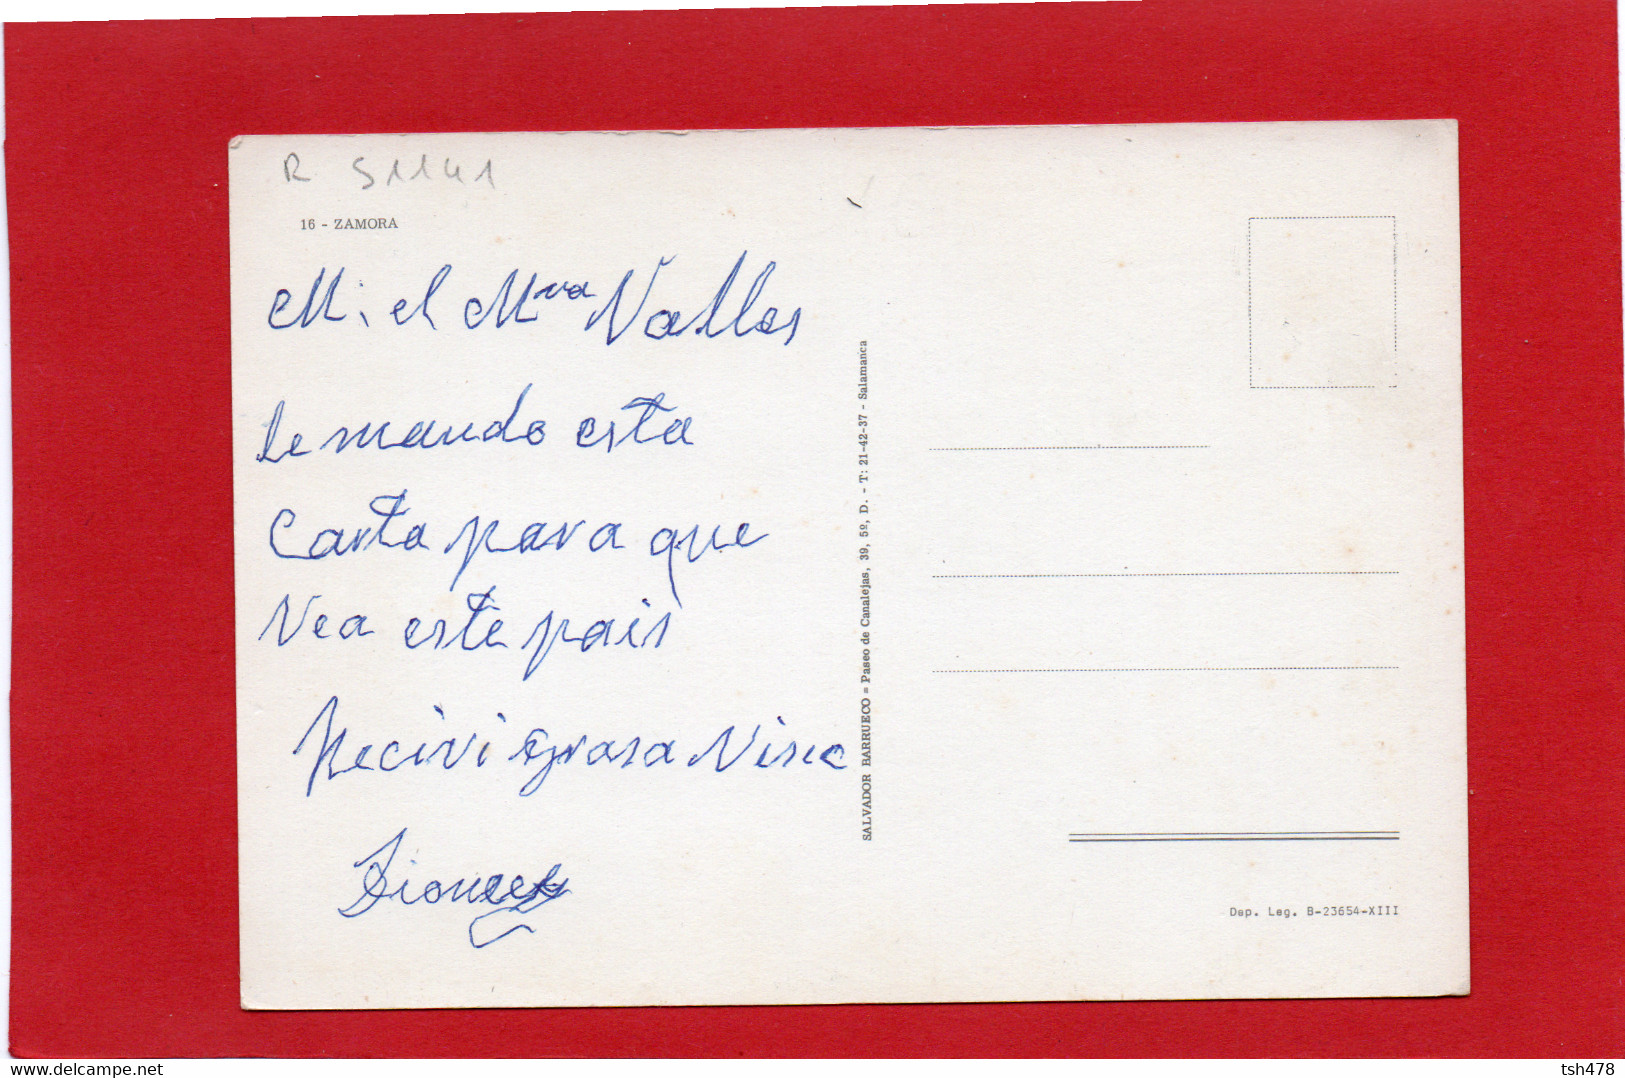 R 51141
16 - ZAMORA
M. el Mᵐᵃ Valles
le mando esta
Carta para que
Vea este pais
Recivi grasa
SALVADOR BARRUECO = Paseo de Canalejas, 39, 5º, D. - T: 21-42-37 - Salamanca
Dep. Leg. B-23654-XIII
www.delcampe.net
tsh478